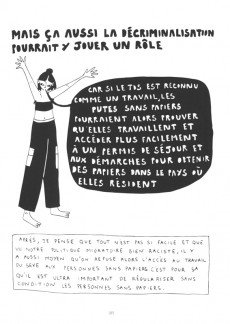 MAIS ÇA AUSSI LA DÉCRIMINALISATION
POURRAIT Y JOUER UN RÔLE
CAR SI LE TDS EST RECONNU
COMME UN TRAVAIL, LES
PUTES SANS PAPIERS
POURRAIENT ALORS PROUVER
QU'ELLES TRAVAILLENT ET
ACCÉDER PLUS FACILEMENT
À UN PERMIS DE SÉJOUR ET
AUX DÉMARCHES POUR OBTENIR
DES PAPIERS DANS LE PAYS OÙ
ELLES RÉSIDENT
APRÈS, JE PENSE QUE TOUT N'EST PAS SI FACILE ET QUE
VU NOTRE POLITIQUE MIGRATOIRE BIEN RACISTE, IL Y
A AUSSI MOYEN QU'ON REFUSE ALORS L'ACCÈS AU TRAVAIL
DU SEXE AUX PERSONNES SANS PAPIERS. C'EST POUR ÇA
QU'IL EST ULTRA IMPORTANT DE RÉGULARISER SANS
CONDITION LES PERSONNES SANS PAPIERS.